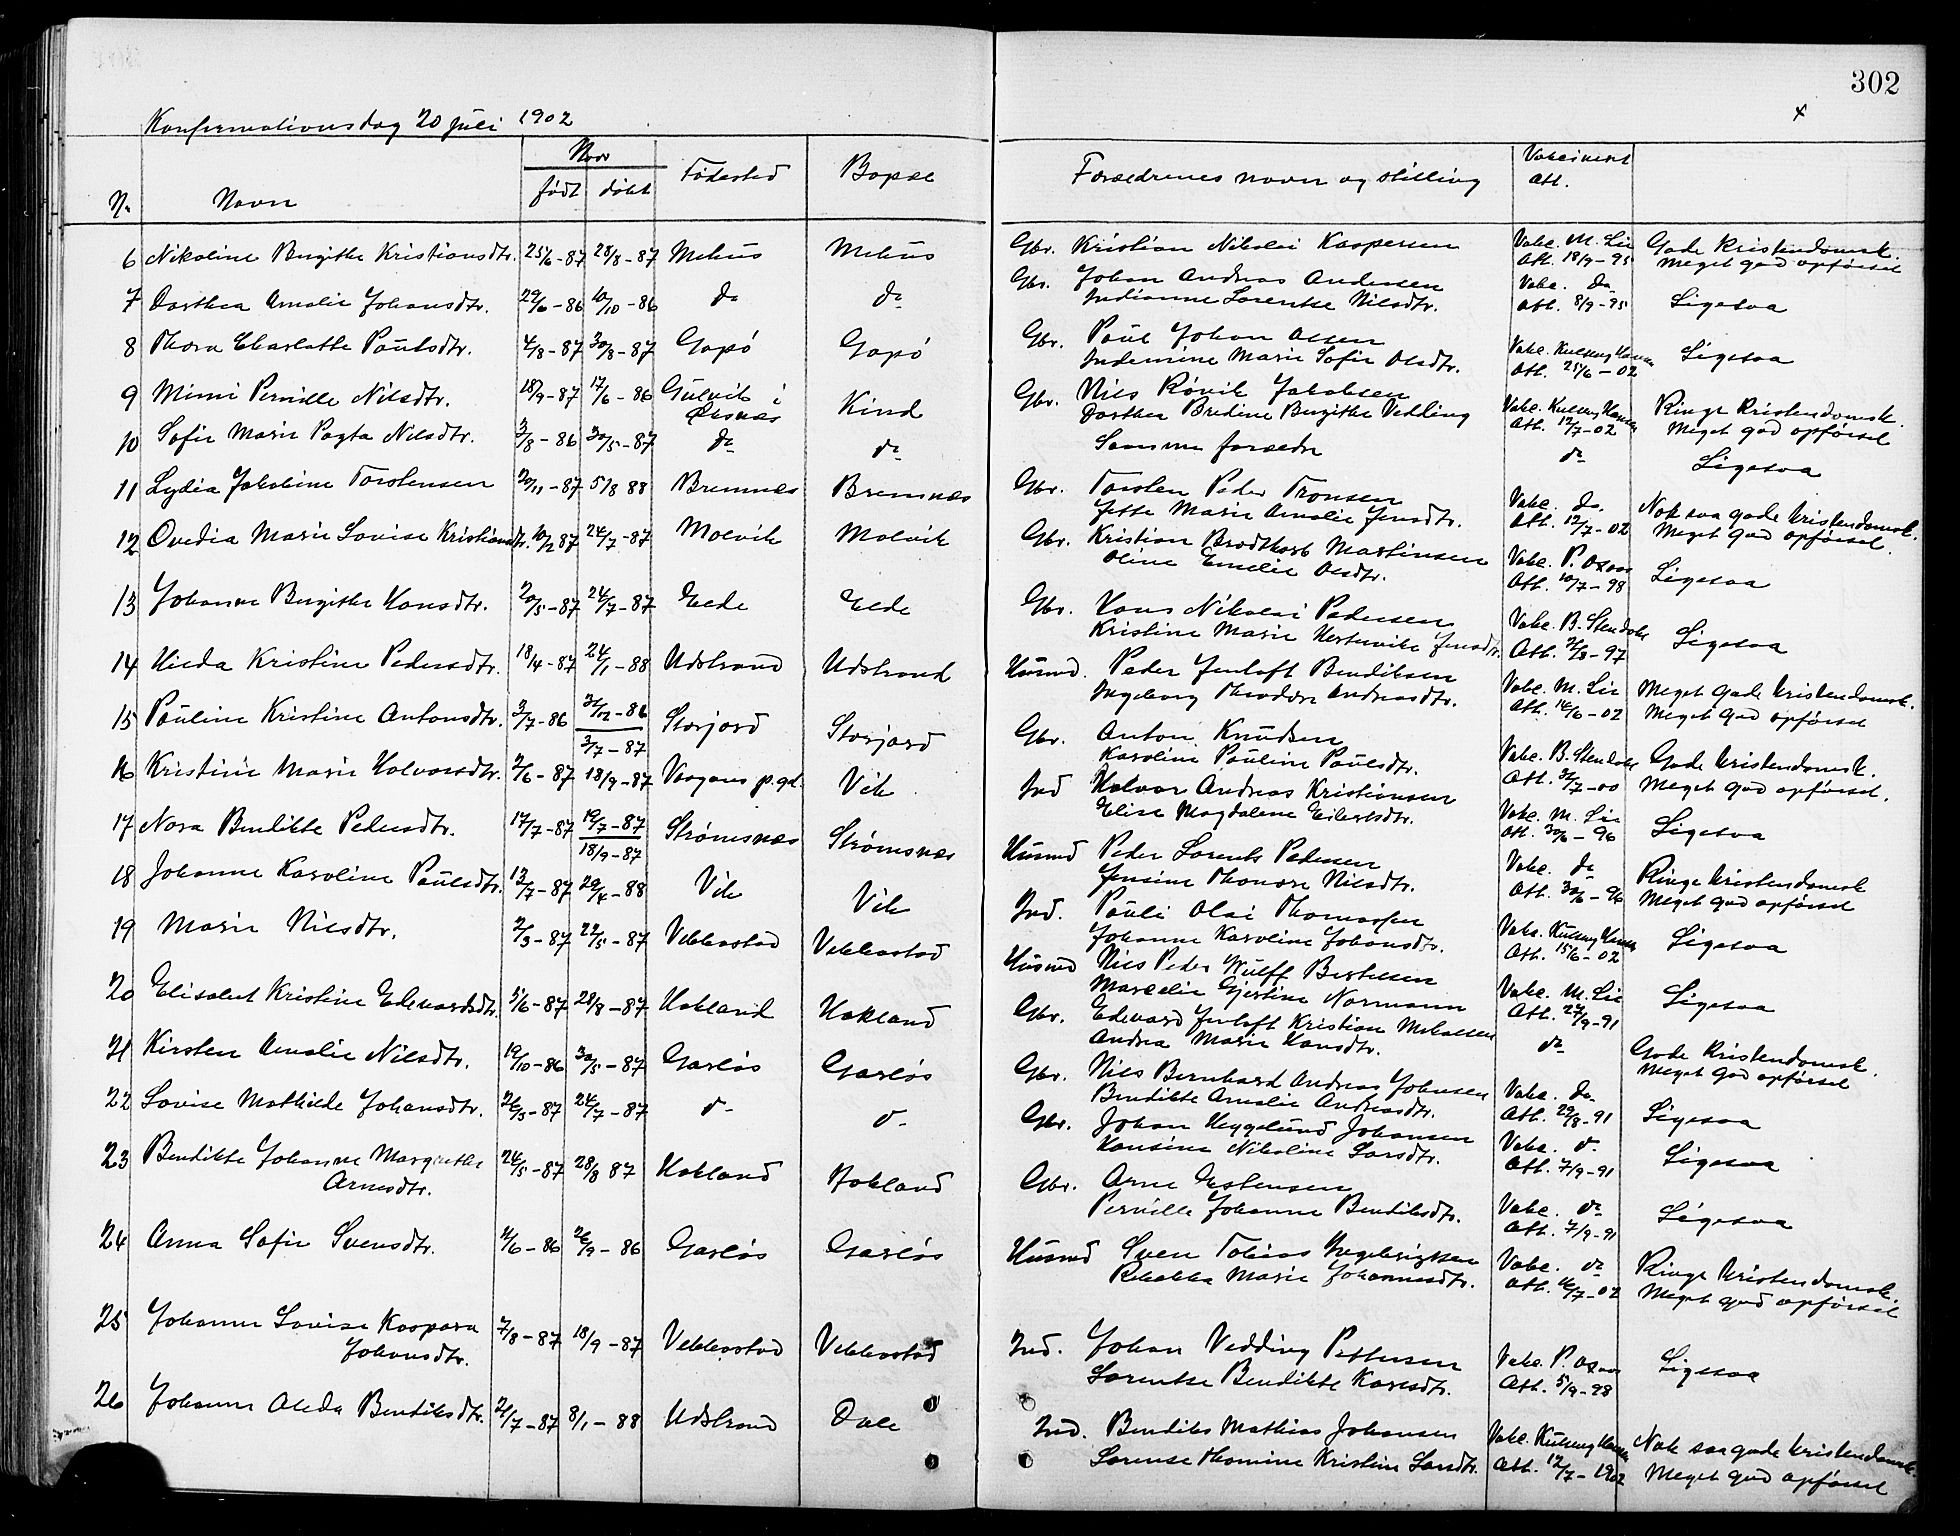 302
Konfirmationsdag 20 juli 1902
N. Navn Naar født døbt Fødested Bopæl Forældrenes navn og stilling Vakcineret Att.
6 Nikoline Birgithe Kristiansdtr. 25/6-87 28/8-87 Mehus Mehus Gbr. Kristian Nikolai Kaspersen Vakc. M. Lie Gode Kristendomsk.
Att. 18/9-95 Meget god opførsel
7 Dorthea Amalie Johansdtr. 29/6-86 10/10-86 do do Gbr. Johan Andreas Andersen Vakc. do Ligesaa
Indianne Lorentse Nilsdtr. Att. 8/9-95
8 Thora Charlotte Paulsdtr. 4/8-87 30/8-87 Gapø Gapø Gbr. Paul Johan Olsen Vakc. Ligesaa
Indemine Marie Sofie Olsdtr. Att. 25/6-02
9 Mimi Pernille Nilsdtr. 18/9-87 17/6-86 Gulvik i Kind Gbr. Nils Røvik Jakobsen Vakc. Ringe Kristendomsk.
Øksnes Dorthea Bredine Birgithe Vedding Att. 12/7-02 Meget god opførsel
10 Sofie Marie Nilsdtr. 3/8-86 30/5-87 do do Samme forældre do Ligesaa
11 Lydia Jakobine Torstensen 20/11-87 5/8 88 Bremnes Bremnes Gbr. Torsten Peder Tronsen Vakc. do. Nok saa gode Kristendomsk.
Jette Marie Amalie Jensdtr. Att. 12/7-02 Meget god opførsel.
12 Ovedia Marie Lovise Kristiansdtr. 10/2 87 24/7-87 Molvik Molvik Gbr. Kristian Brodtkorb Martinsen Vakc. P. Ligesaa
Oline Emelie Olsdtr. Att. 10/7-98
13 Johanne Birgithe Hansdtr. 20/5-87 24/7-87 Elde Elde Gbr. Hans Nikolai Pedersen Vakc. B. Ligesaa
Kristine Marie Jensdtr. Att. 2/8-97
14 Hilda Kristine Pedersdtr. 18/4-87 24/1-88 Udstrand Udstrand Husmd. Peder Jentoft Bendiksen Vakc. M. Lie Meget gode Kristendomsk.
Ingeborg Theodora Andreasdtr. Att. 14/6-02 Meget god opførsel
15 Pauline Kristine Antonsdtr. 3/7-86 31/12-86 Storjord Storjord Gbr. Anton Knudsen Vakc. B. Gode Kristendomsk.
3/7-87 Karoline Pauline Paulsdtr. Att. 31/7-00 Meget god opførsel.
16 Kristine Marie Halvorsdtr. 2/6-87 18/9-87 Vaagans p.gd. Vik Ind Halvor Andreas Kristiansen Vakc. M. Lie Ligesaa
Elise Magdalene Eilertsdtr. Att. 30/6-96
17 Nora Bendikte Pedersdtr. 17/7-87 19/7-87 Strømsnæs Strømsnæs Husmd Peder Lorents Pedersen Vakc. do Ringe Kristendomsk
18/9-87 Jensine Nilsdtr. Att. 30/6-96 Meget god opførsel
18 Johanne Karoline Paulsdtr. 13/7-87 29/4-88 Vik Vik Ind. Pauli Olai Thomassen Vakc. Ligesaa
Johanne Karoline Johansdtr. Att. 15/6-02
19 Marie Nilsdtr. 2/3-87 22/5-87 Vebbestad Vebbestad Husmd Nils Peder Wulff Bertelsen Vakc. M. Lie Ligesaa
Marselie Gjertine Normann Att. 27/9-91
20 Elisabet Kristine Edevardsdtr. 5/6-87 28/8-87 Hokland Hokland Gbr. Edevard Jentoft Kristian Mikalsen do Gode Kristendomsk.
Andrea Marie Hansdtr. Meget god opførsel
21 Kirsten Amalie Nilsdtr. 19/10-86 30/5-87 Garløs Garløs Gbr. Nils Bernhard Andreas Johnsen Vakc. do. Ligesaa
Bendikte Amalie Andreasdtr. Att. 29/8-91
22 Lovise Mathilde Johansdtr. 26/3-87 24/7-87 do do Gbr. Johan Heggelund Johansen Vakc. do. Ligesaa
Hansine Nikoline Larsdtr. Att. 7/9-91
23 Bendikte Johanne Margrethe 24/5-87 28/8 87 Hokland Hokland Gbr. Arne Estensen Vakc. do Ligesaa
Arnesdtr. Pernille Johanne Bendiksdtr. Att. 7/9-91
24 Anna Sofie Svensdtr. 4/6-86 26/9-86 Garløs Garløs Husmd Sven Tobias Ingebrigtsen Vakc. do Ringe Kristendomsk.
Rebekka Marie Johannesdtr. Att. 16/7-02 Meget god opførsel
25 Johanne Lovise Kaspara 7/8-87 18/9-87 Vebbestad Vebbestad Ind. Johan Vedding Pettersen Vakc. P. Ligesaa
Johansdtr. Lorentse Bendikte Karesdtr. Att. 5/9-98
26 Johanne Alida Bendiksdtr. 21/7-87 8/1-88 Udstrand Dale Ind. Bendiks Mathias Johansen Vakc. Nok saa gode Kristendomsk.
Lorense Thomine Kristine Larsdtr. Att. 12/7-1902 Meget god opførsel